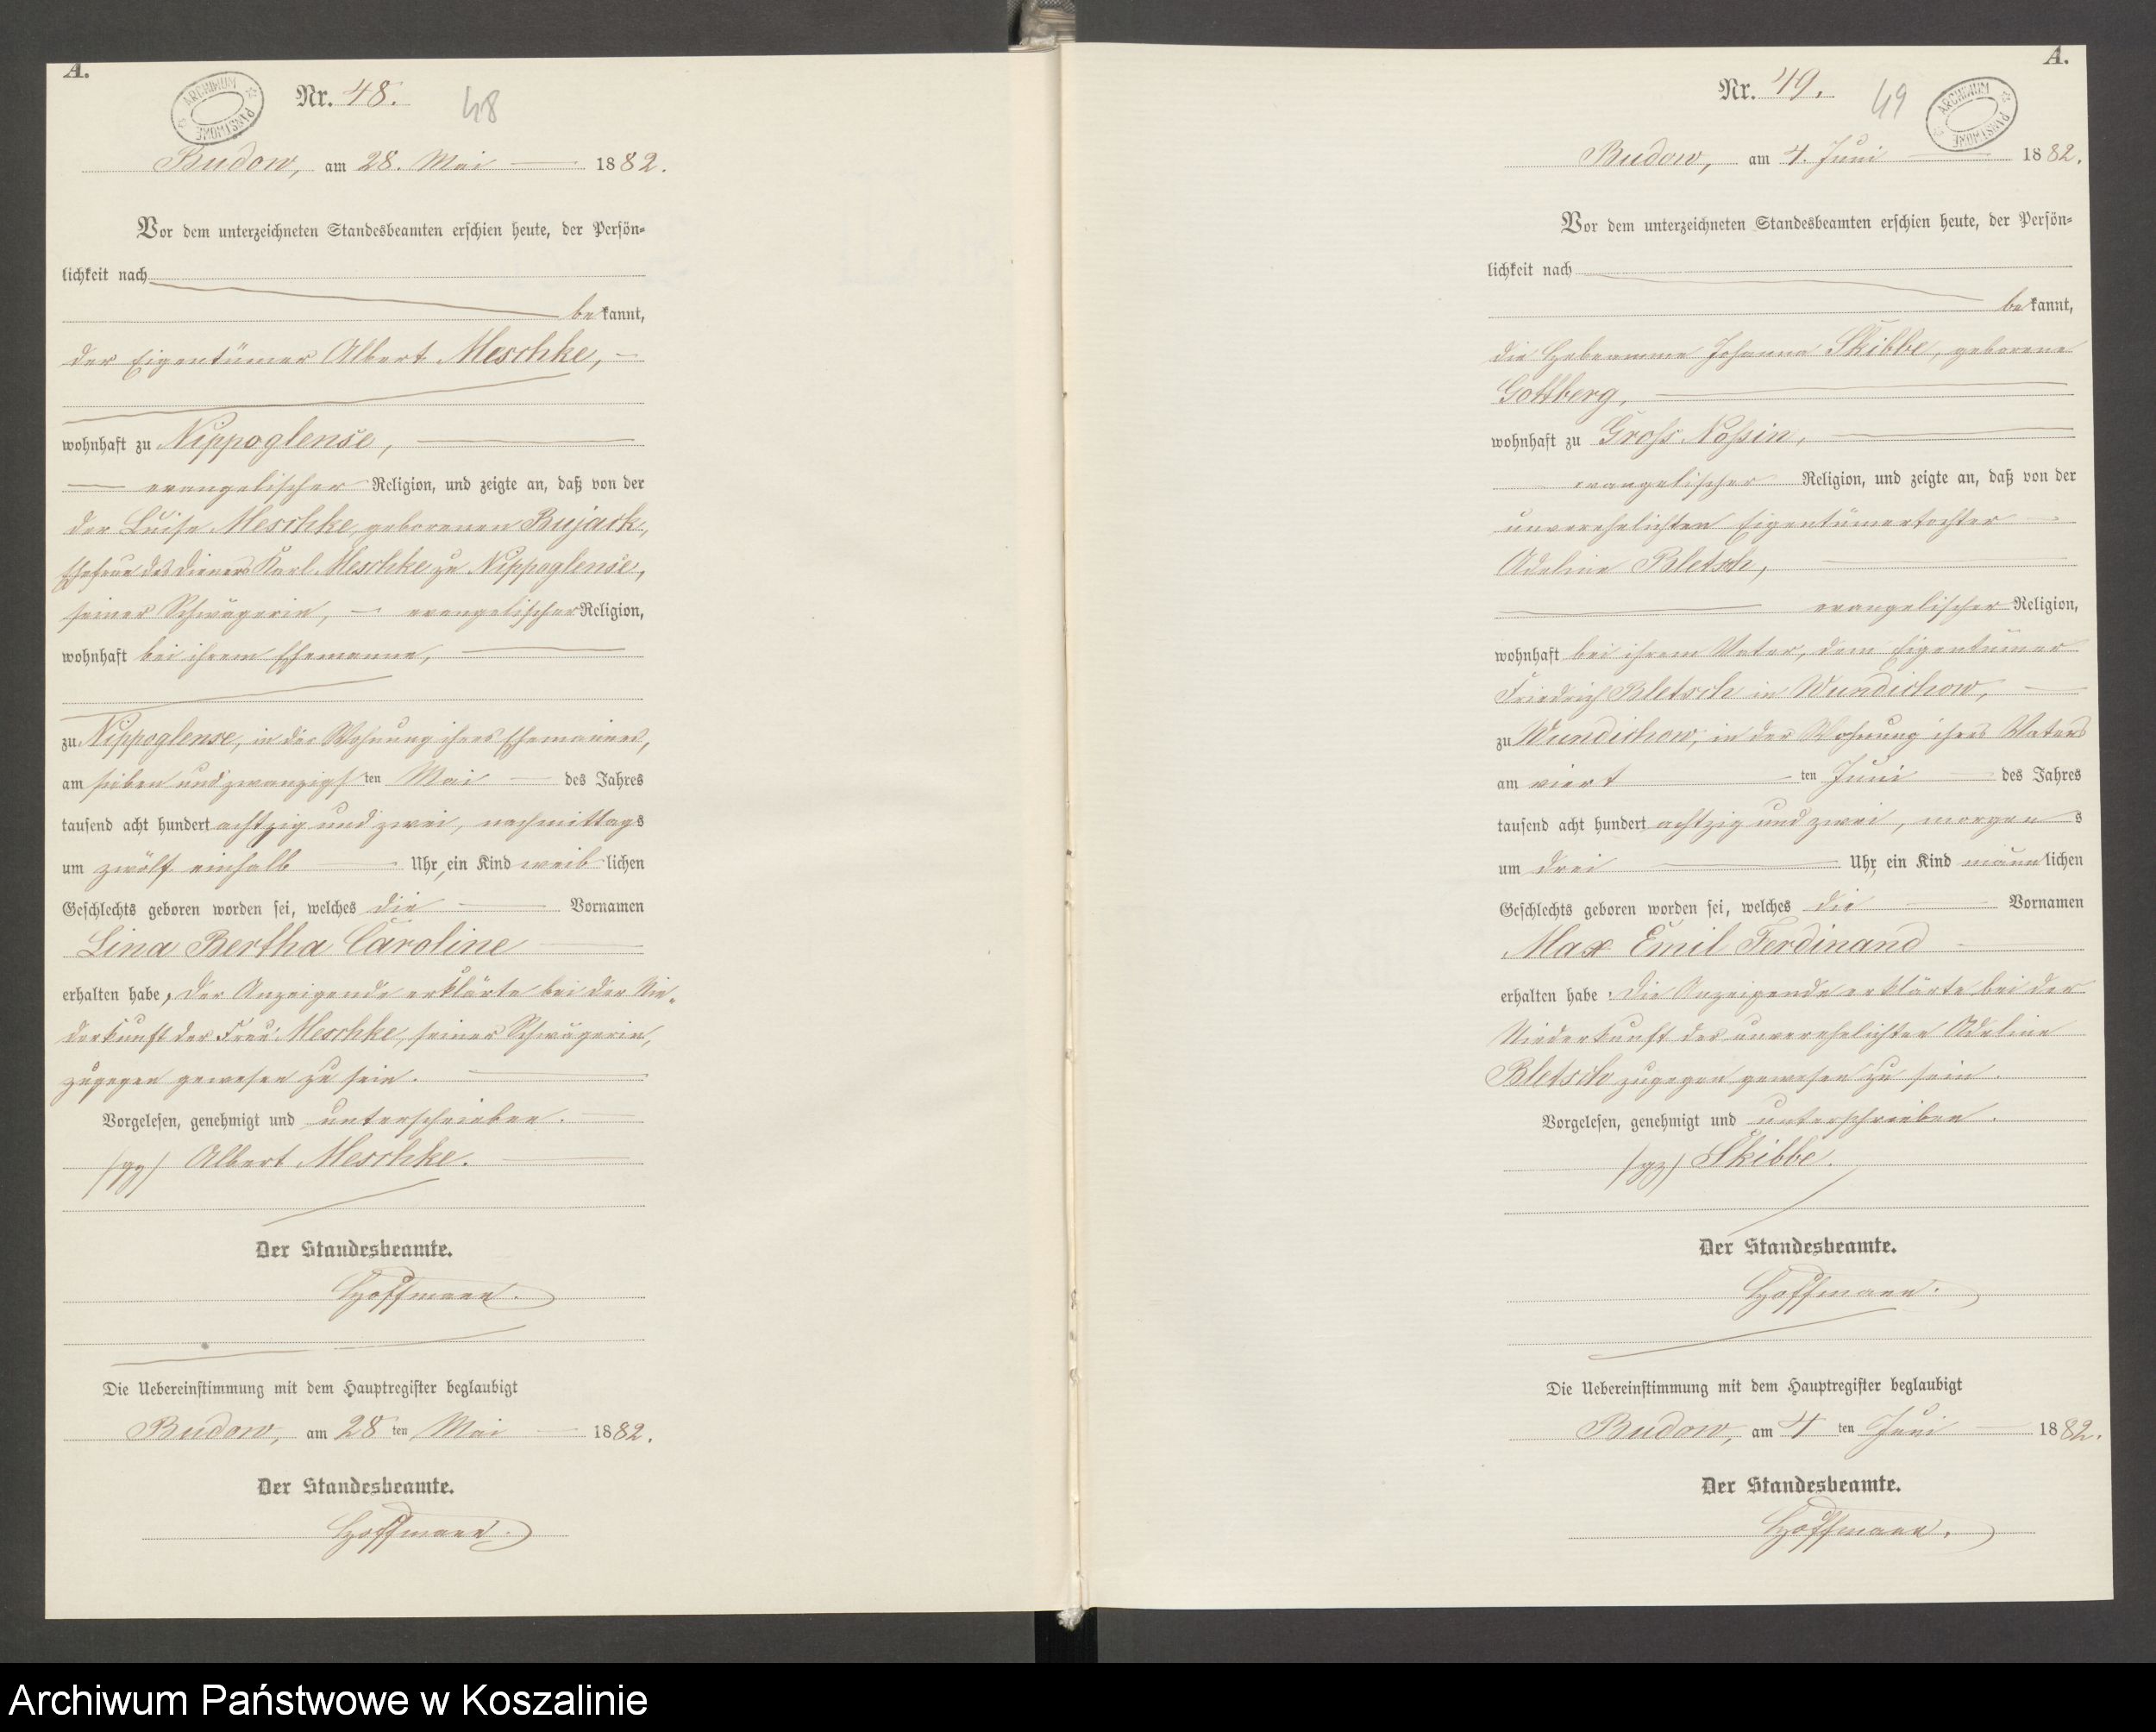 A.
ARCHIWUM PAŃSTWOWE
Nr. 48. 48
Budow, am 28. Mai 1882.
Vor dem unterzeichneten Standesbeamten erschien heute, der Persön=
lichkeit nach
bekannt,
der Eigentümer Albert Meschke,
wohnhaft zu Nippoglense,
evangelischer Religion, und zeigte an, daß von der
der Luise Meschke, geborenen Bujack,
Ehefrau des Dieners Karl Meschke zu Nippoglense,
seiner Schwägerin, evangelischer Religion,
wohnhaft bei ihrem Ehemanne,
zu Nippoglense, in der Wohnung ihres Ehemannes,
am sieben und zwanzigsten Mai des Jahres
tausend acht hundert achtzig und zwei, nachmittags
um zwölf einhalb Uhr, ein Kind weiblichen
Geschlechts geboren worden sei, welches die Vornamen
Lina Bertha Caroline
erhalten habe, der Anzeigende erklärte bei der Nie=
derkunft der Frau Meschke, seiner Schwägerin,
zugegen gewesen zu sein.
Vorgelesen, genehmigt und unterschrieben.
(gz) Albert Meschke.
Der Standesbeamte.
Hoffmann.
Die Uebereinstimmung mit dem Hauptregister beglaubigt
Budow, am 28ten Mai 1882.
Der Standesbeamte.
Hoffmann.
A.
ARCHIWUM PAŃSTWOWE
Nr. 49. 49
Budow, am 4. Juni 1882.
Vor dem unterzeichneten Standesbeamten erschien heute, der Persön=
lichkeit nach
bekannt,
die Hebeamme Johanna Skibbe, geborene
Gottberg,
wohnhaft zu Gross Nossin,
evangelischer Religion, und zeigte an, daß von der
unverehelichten Eigentümertochter
Adeline Bletsch,
evangelischer Religion,
wohnhaft bei ihrem Vater, dem Eigentümer
Friedrich Bletsch in Wundichow,
zu Wundichow, in der Wohnung ihres Vaters
am vierten Juni des Jahres
tausend acht hundert achtzig und zwei, morgens
um drei Uhr, ein Kind männlichen
Geschlechts geboren worden sei, welches die Vornamen
Max Emil Ferdinand
erhalten habe. Die Anzeigende erklärte bei der
Niederkunft der unverehelichten Adeline
Bletsch zugegen gewesen zu sein.
Vorgelesen, genehmigt und unterschrieben.
(gz) Skibbe.
Der Standesbeamte.
Hoffmann.
Die Uebereinstimmung mit dem Hauptregister beglaubigt
Budow, am 4ten Juni 1882.
Der Standesbeamte.
Hoffmann.
Archiwum Państwowe w Koszalinie